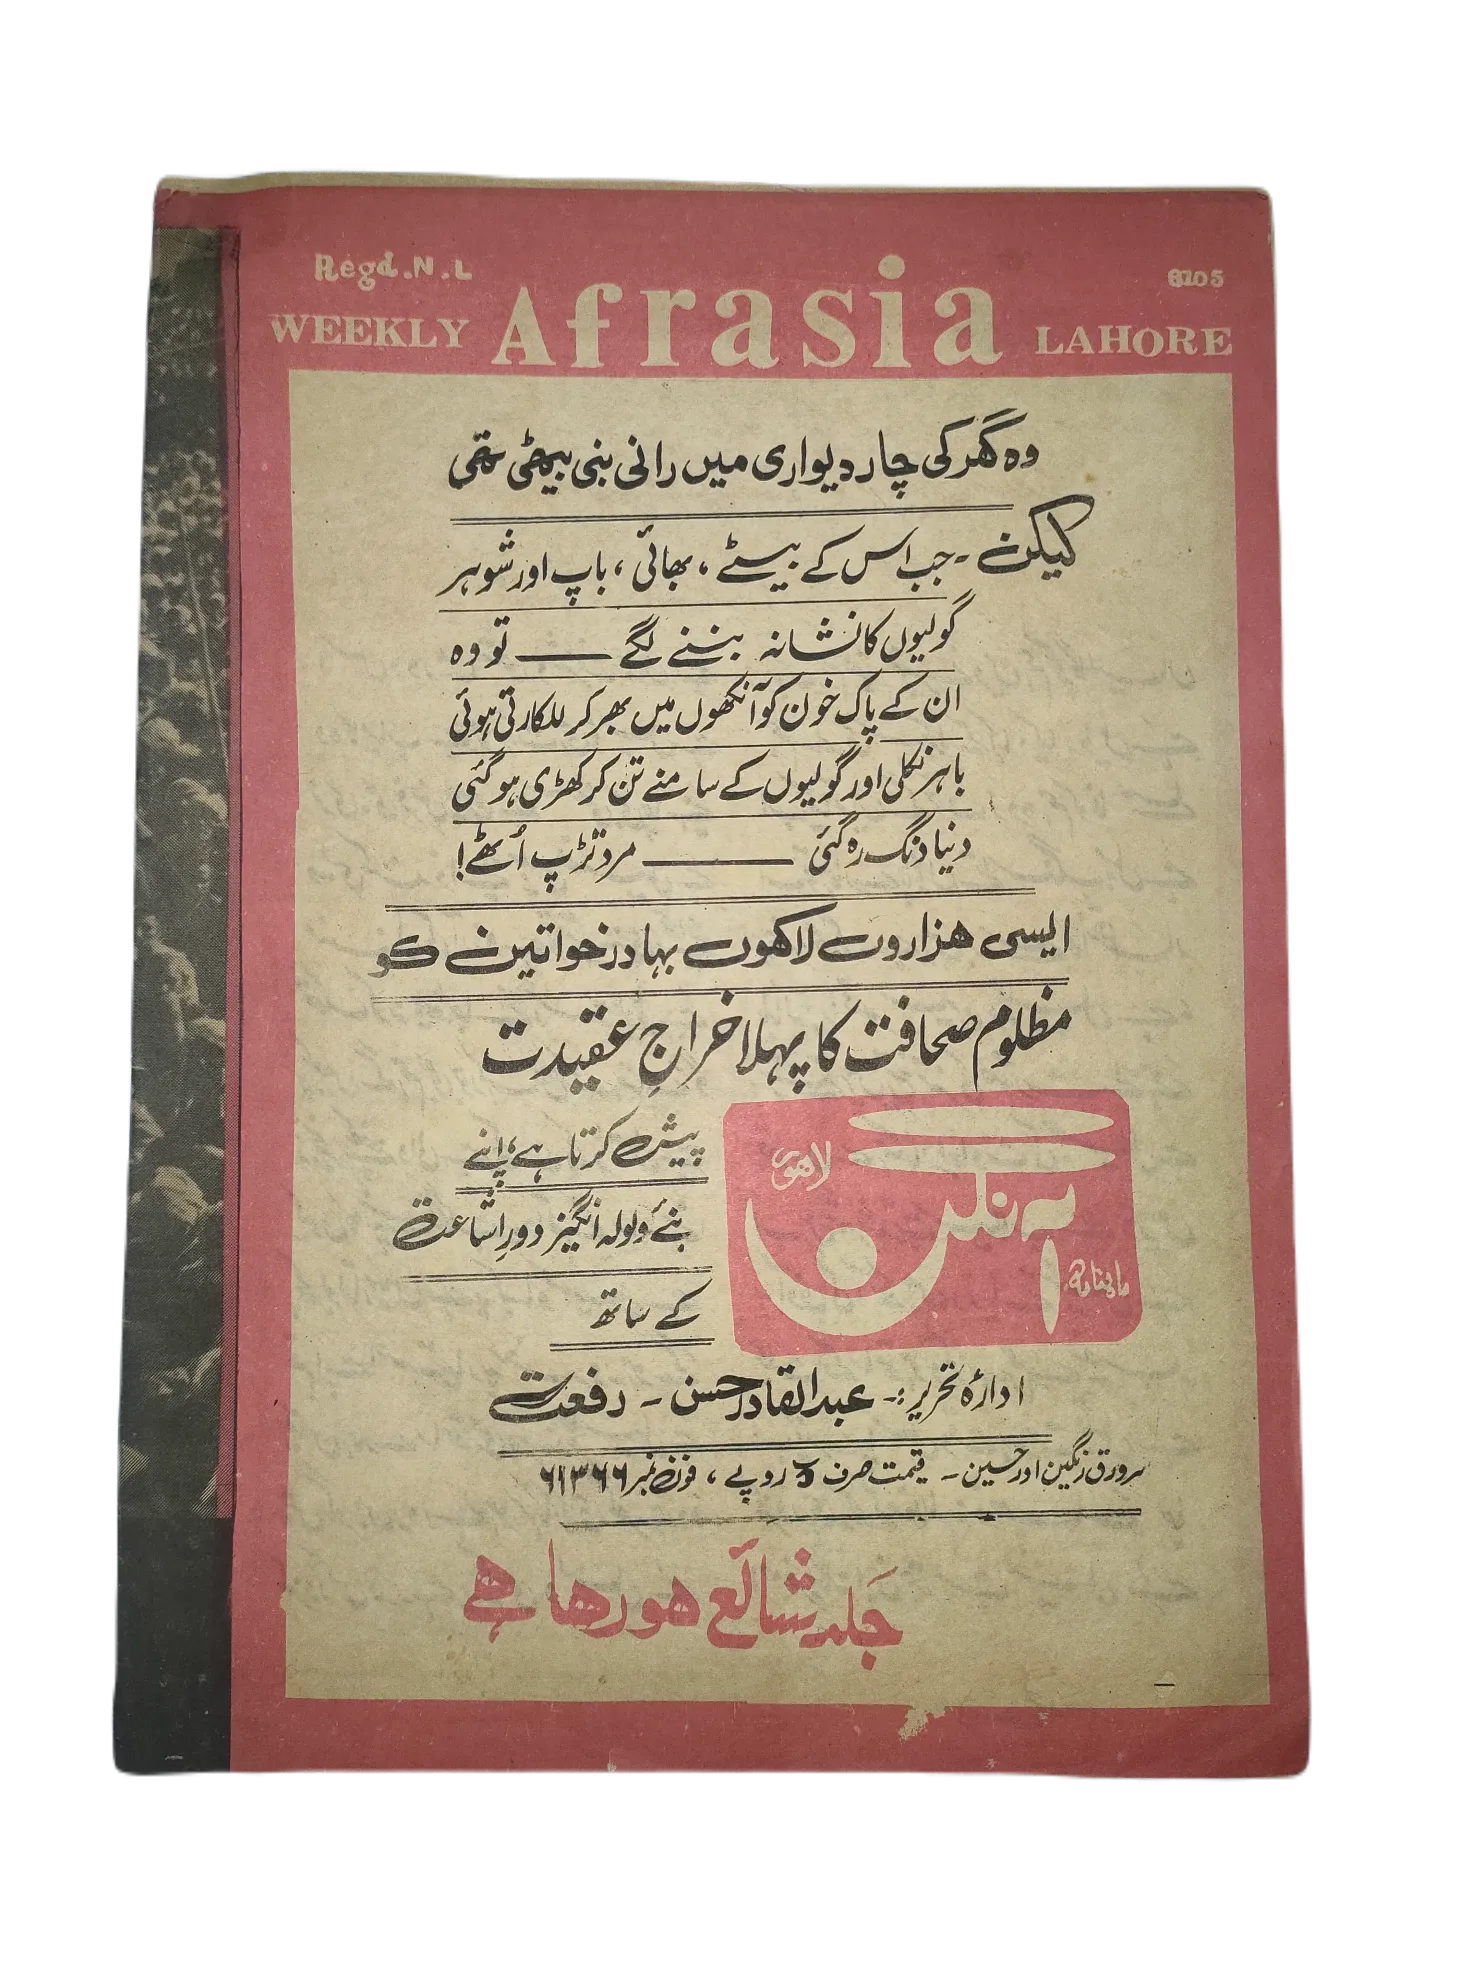 Regd.N.L 6105
WEEKLY Afrasia LAHORE
وہ گھر کی چار دیواری میں رانی بنی بیٹھی تھی
لیکن ۔ جب اس کے بیٹے ، بھائی ، باپ اور شوہر
گولیوں کا نشانہ بننے لگے —— تو وہ
ان کے پاک خون کو آنکھوں میں بھر کر للکارتی ہوئی
باہر نکلی اور گولیوں کے سامنے تن کر کھڑی ہو گئی
دنیا دنگ رہ گئی —— مرد تڑپ اُٹھے!
ایسی ہزاروں لاکھوں بہادر خواتین کو
مظلوم صحافت کا پہلا خراجِ عقیدت
ماہنامہ آہنگ لاہور
پیش کرتا ہے، اپنے
نئے ولولہ انگیز دورِ اشاعت
کے ساتھ
ادارۂ تحریر :- عبدالقادر حسن - رفعت
سرورق رنگین اور حسین - قیمت صرف ۵ روپے ، فون نمبر ۶۱۳۶۶
جلد شائع ہو رہا ہے